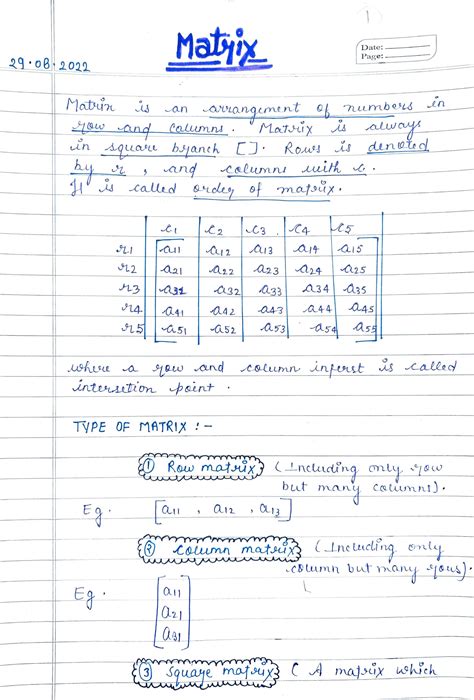 1
Matrix
Date:
Page:
29.08.2022
Matrix is an arrangement of numbers in
row and columns. Matrix is always
in square branch []. Rows is denoted
by r, and columns with c.
It is called order of matrix.
c1 c2 c3 c4 c5
r1 a11 a12 a13 a14 a15
r2 a21 a22 a23 a24 a25
r3 a31 a32 a33 a34 a35
r4 a41 a42 a43 a44 a45
r5 a51 a52 a53 a54 a55
where a row and column inferst is called
intersetion point.
TYPE OF MATRIX :-
① Row matrix (Including only row
but many columns).
Eg. [a11, a12, a13]
② column matrix (Including only
column but many rows).
Eg. a11
a21
a31
③ Square matrix ( A matrix which